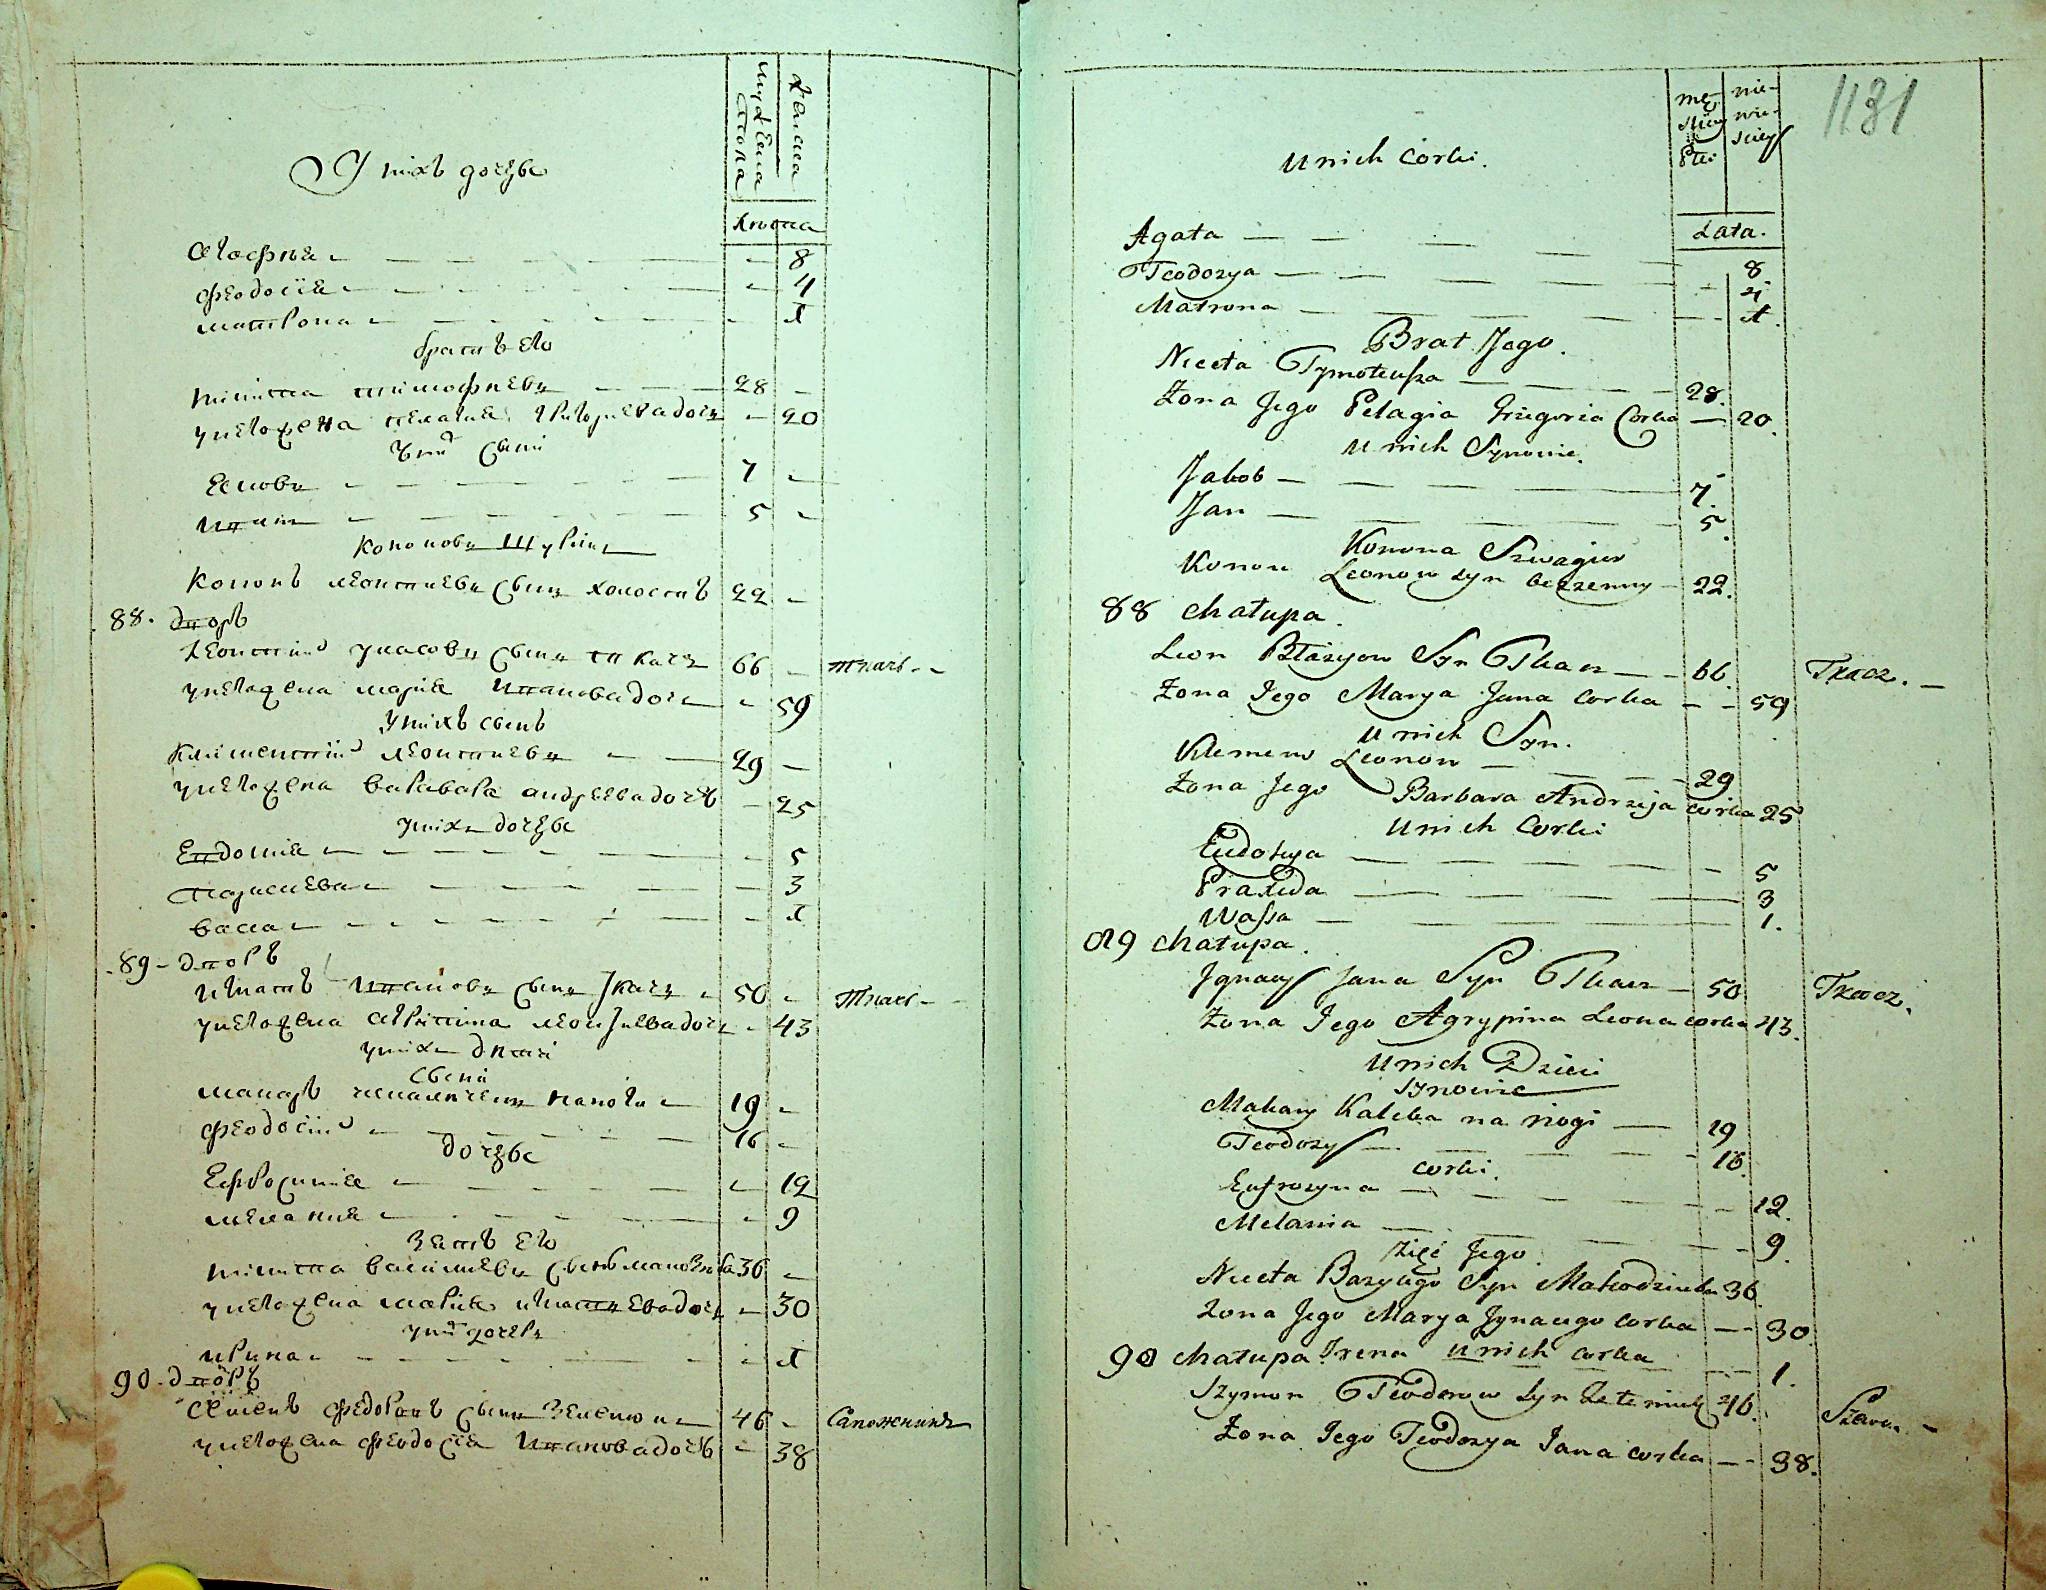 У нихъ дочери
мужеска пола
женска
лѣта
Агафия 8
феодосия 4
матрона 1
братъ его
никита тимофиевъ 28
у него жена пелагия григориева дочь 20
у них сыни
Ияковъ 7
иван 5
Кононовъ Шурин
Кононъ леонтиевъ сынъ холостъ 22
88. дворъ
леонтий власовъ сынъ ткачъ 66 ткачь
у него жена мария иванова дочь 59
у нихъ сынъ
климентий леонтиевъ 29
у него жена варвара андреева дочь 25
у них дочери
Евдокия 5
парасцева 3
васса 1
89 дворъ
игнатъ ивановъ сынъ ткачъ 50 ткачь
у него жена агрипина леонтиева дочь 43
у них дети
сыни
макаръ 19
феодосий 16
дочери
Ефросиния 12
мелания 9
зять его
никита василиевъ сынъ 36
у него жена мария игнатиева дочь 30
у них дочеръ
ирина 1
90 дворъ
семенъ федоровъ сынъ 46 Сапожникъ
у него жена феодосия иванова дочь 38
1131
U nich Corki.
mę-skiey Płci
nie-wie-sciey
Lata.
Agata 8
Teodozya 4
Matrona 1
Brat Jego.
Niceta Tymoteusza 28.
Żona Jego Pelagia Grzegorza Corka 20.
U nich Synowie.
Jakob 7.
Jan 5.
Konona Szwagier
Konon Leonow syn bezzenny 22.
88 Chałupa.
Leon Błażyow Syn Tkacz 66. Tkacz.
Żona Jego Marya Jana corka 59
U nich Syn.
Klemens Leonow 29
Żona Jego Barbara Andrzeja corka 25
U nich Corki
Eudokya 5
Praxeda 3
Wassa 1.
89 Chałupa.
Jgnacy Jana Syn Tkacz 50 Tkacz.
Żona Jego Agrypina Leona corka 43.
U nich Dzieci
Synowie
Makary Kaleka na nogi 19
Teodozy 16
corki.
Eufrozyna 12.
Melania 9.
Zięć Jego
Niceta Bazylego Syn 36.
Żona Jego Marya Jgnacego corka 30
90 Chałupa Irena U nich corka 1.
Szymon Teodorow syn 46. Szewc.
Żona Jego Teodozya Jana corka 38.